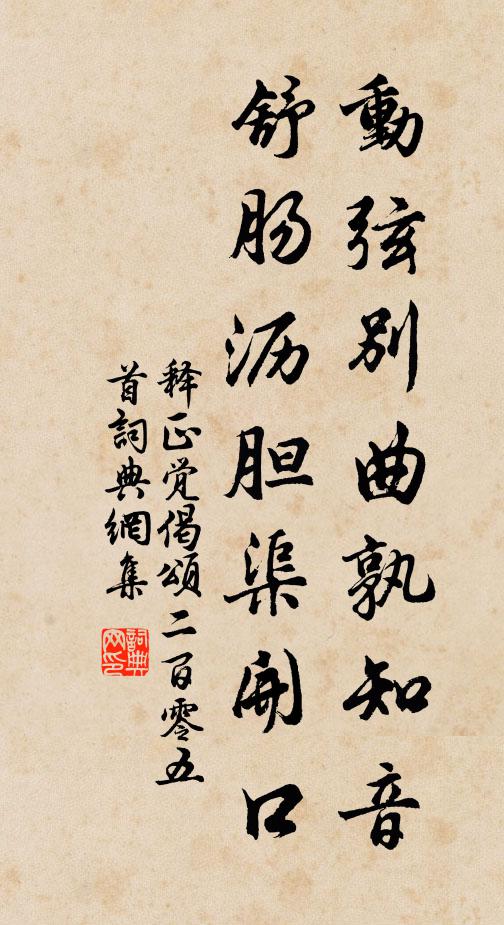 動弦别曲孰知音
舒肠沥胆渠開口
释正觉偈頌二百零五
首詞典網集
詞典
网印